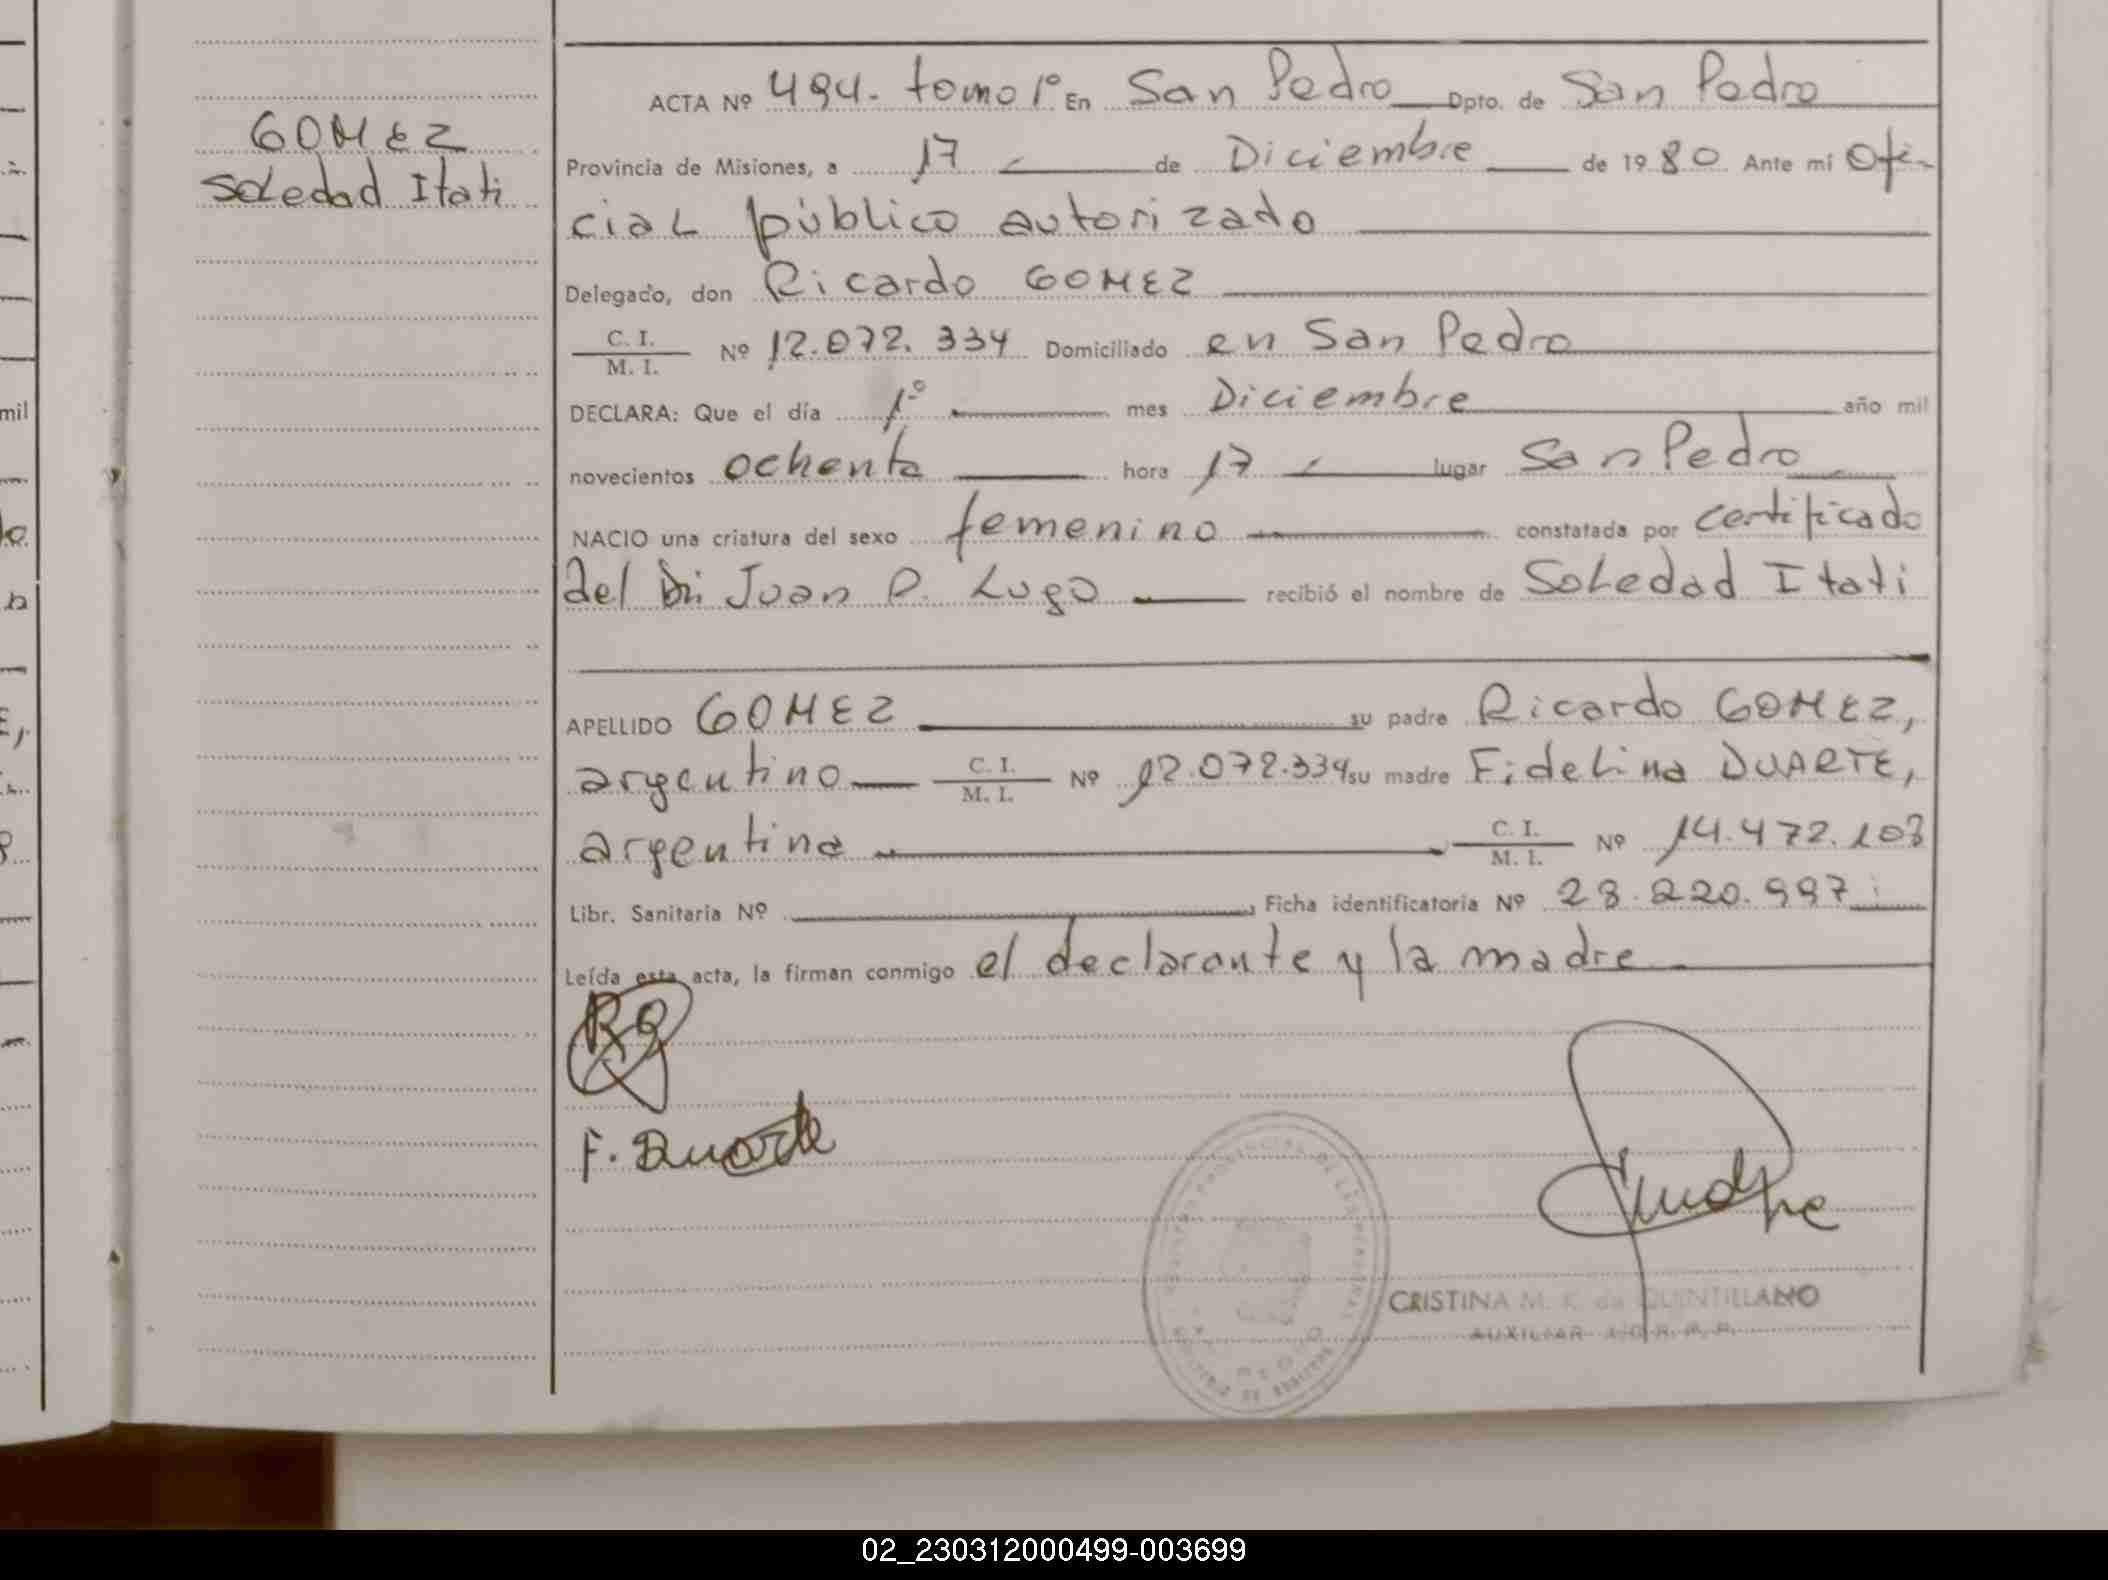 GOMEZ
Soledad Itati
ACTA Nº 494. tomo 1º En San Pedro Dpto. de San Pedro
Provincia de Misiones, a 17 de Diciembre de 1980 Ante mi Ofi-
cial público autorizado
Delegado, don Ricardo GOMEZ
C. I.
M. I. Nº 12.072.334 Domiciliado en San Pedro
DECLARA: Que el día 1º mes Diciembre año mil
novecientos ochenta hora 17 lugar San Pedro
NACIO una criatura del sexo femenino constatada por certificado
del Dr. Juan D. Lugo recibió el nombre de Soledad Itati
APELLIDO GOMEZ su padre Ricardo GOMEZ,
argentino C. I.
M. I. Nº 12.072.334 su madre Fidelina DUARTE,
argentina C. I.
M. I. Nº 14.472.103
Libr. Sanitaria Nº , Ficha identificatoria Nº 28.220.997
Leída esta acta, la firman conmigo el declarante y la madre
RG
F. Duarte
CRISTINA M. K. de QUINTILLANO
AUXILIAR
mil
02_230312000499-003699